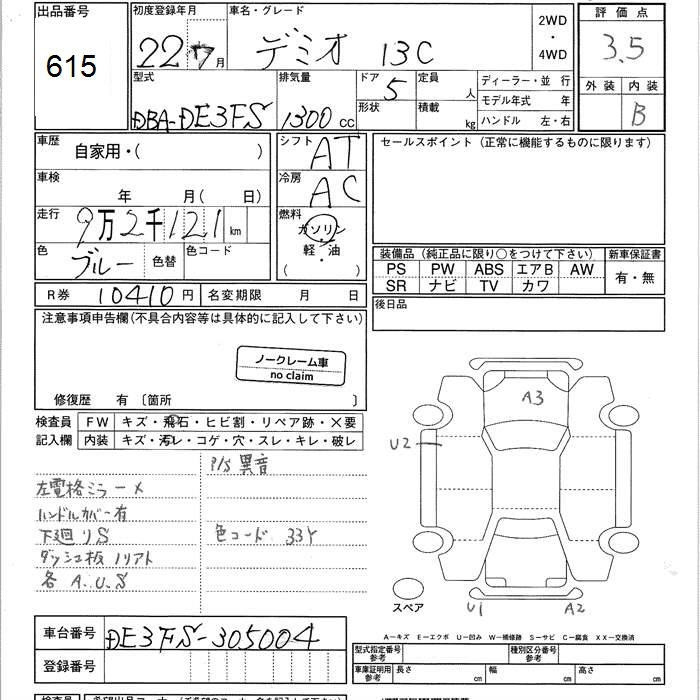 出品番号
615
初度登録年月
22 7月
車名・グレード
デミオ 13C
2WD
・
4WD
評価点
3.5
外装 内装
B
型式
DBA-DE3FS
排気量
1300 cc
ドア
5
形状
定員
人
積載
kg
ディーラー・並行
モデル年式 年
ハンドル 左・右
車歴
自家用・( )
シフト
AT
セールスポイント(正常に機能するものに限ります)
車検
年 月(日)
冷房
AC
走行
9万2千121 km
燃料
ガソリン
軽・油
( )
色
ブルー
色替
色コード
装備品(純正品に限り○をつけて下さい)
新車保証書
PS PW ABS エアB AW
SR ナビ TV カワ
有・無
R券 10410円
名変期限 月 日
後日品
注意事項申告欄(不具合内容等は具体的に記入して下さい)
ノークレーム車
no claim
修復歴 有〔箇所 〕
検査員
記入欄
FW キズ・飛石・ヒビ割・リペア跡・×要
内装 キズ・汚レ・コゲ・穴・スレ・キレ・破レ
P/S 異音
左電格ミラーメ
ハンドルカバー有
下廻りS
色コード 33Y
ダッシュ板ノリアト
各A.U.S
A3
U2
スペア
U1
A2
車台番号
DE3FS-305004
登録番号
A－キズ E－エクボ U－凹み W－補修跡 S－サビ C－腐食 XX－交換済
型式指定番号
参考
種別区分番号
参考
車庫証明用
参考
長さ cm
幅 cm
高さ cm